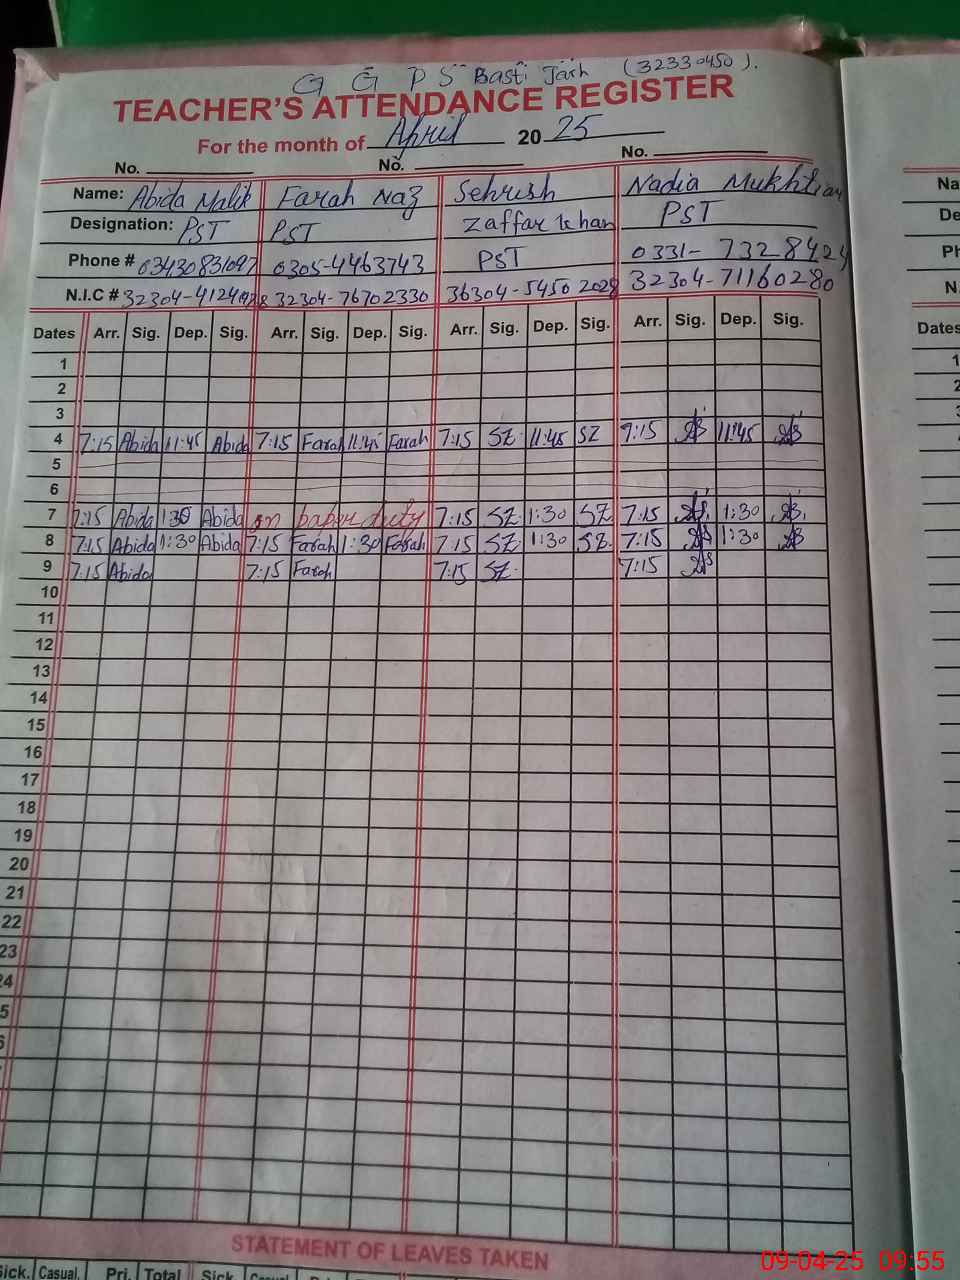 G G P S Basti Jarh (32330450).
TEACHER'S ATTENDANCE REGISTER
For the month of April 2025
No. No. No.
Name: Abida Malik Farah Naz Sehrish Nadia Mukhtiar
Designation: PST PST Zaffar Khan PST
Phone # 03430831097 0305-4463743 PST 0331-7328424
N.I.C # 32304-4124 32304-76702330 36304-5450 2028 32304-71160280
Dates Arr. Sig. Dep. Sig. Arr. Sig. Dep. Sig. Arr. Sig. Dep. Sig. Arr. Sig. Dep. Sig.
1
2
3
4 7:15 Abida 11:45 Abida 7:15 Farah 11:45 Farah 7:15 SZ 11:45 SZ 7:15 11:45
5
6
7 7:15 Abida 1:30 Abida on paper duty 7:15 SZ 1:30 SZ 7:15 1:30
8 7:15 Abida 1:30 Abida 7:15 Farah 1:30 Farah 7:15 SZ 1:30 SZ 7:15 1:30
9 7:15 Abida 7:15 Farah 7:15 SZ 7:15
10
11
12
13
14
15
16
17
18
19
20
21
22
23
24
STATEMENT OF LEAVES TAKEN
Sick. Casual. Pri. Total Sick. Casual
Na
De
Ph
N.
Dates
1
2
09-04-25 09:55